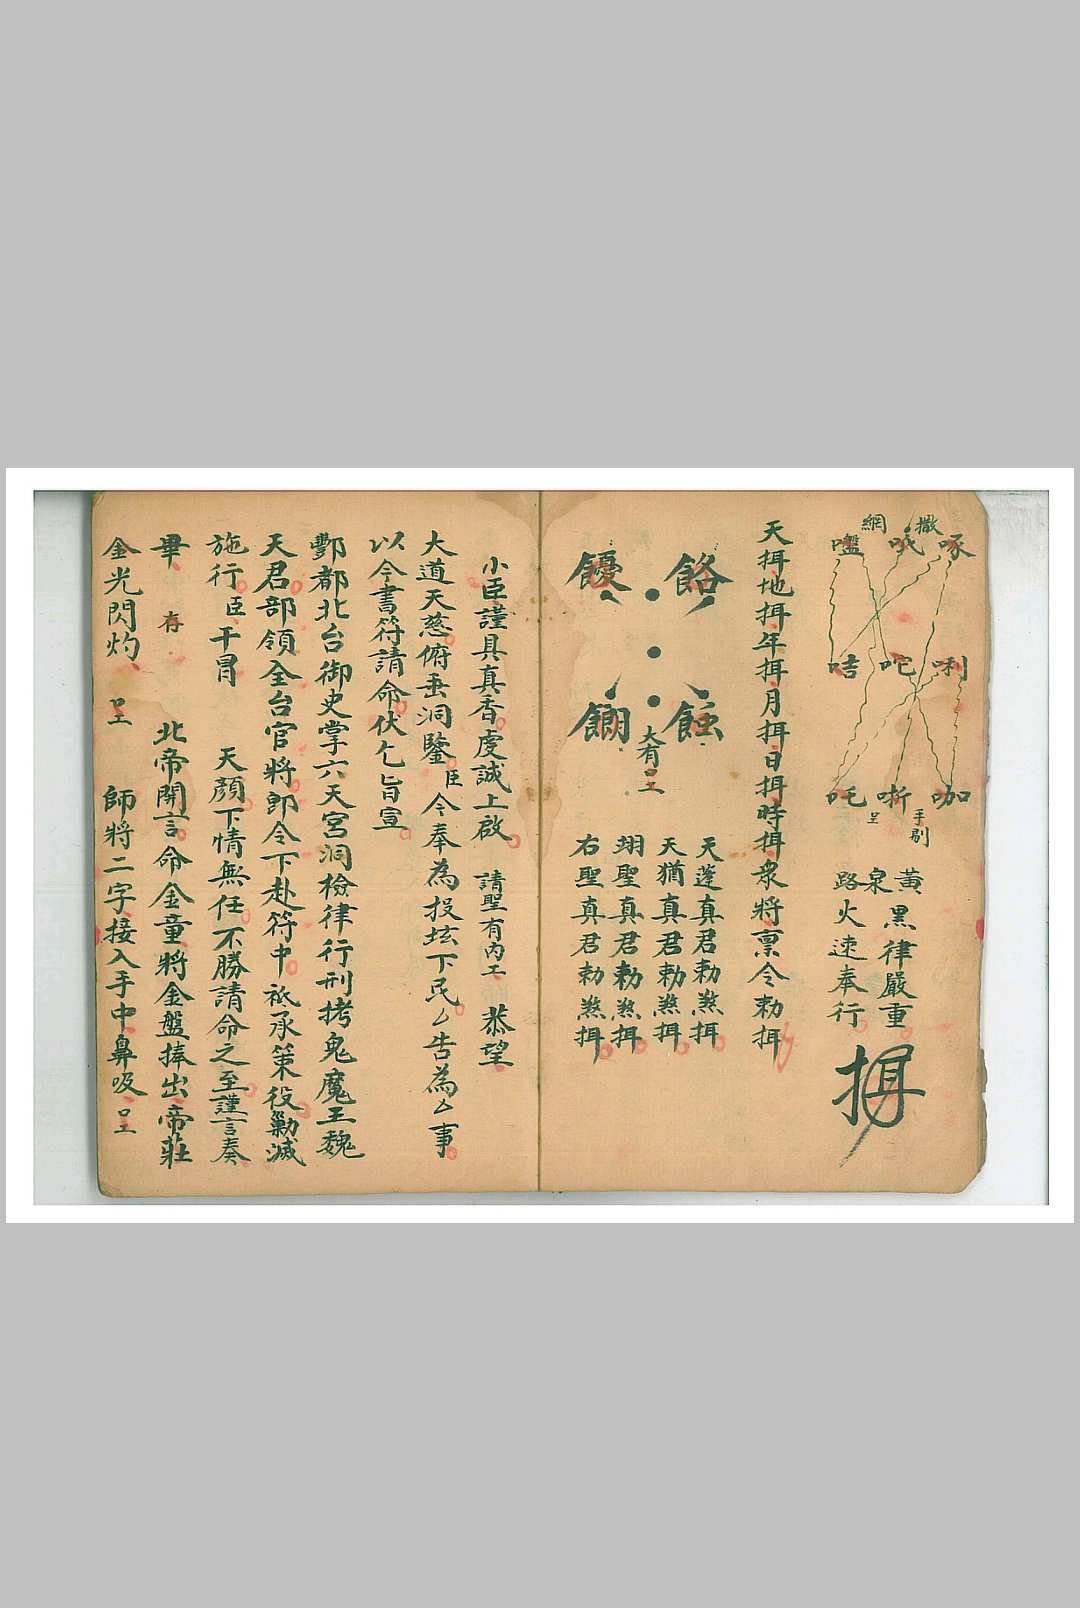 網　撒
嚂　哦　啄
咭　咜　唎
吒　哳　咖
手剔
黃泉路
黑律嚴重
火速奉行
天揖地揖年揖月揖日揖時揖衆將稟令勑揖
大有
天蓬真君勑煞揖
天猶真君勑煞揖
翊聖真君勑煞揖
右聖真君勑煞揖
小臣謹具真香虔誠上啟　請聖有內　恭望
大道天慈俯垂洞鑒臣今奉為投坛下民厶告為厶事
以今書符請命伏乞旨宣
酆都北台御史掌六天宮洞檢律行刑拷鬼魔王魏
天君部領全台官將即令下赴符中祗承策役勦滅
施行臣干冒　天顏下情無任不勝請命之至謹言奏
畢　存　北帝開言命金童將金盤捧出帝莊
金光閃灼　師將二字接入手中鼻吸